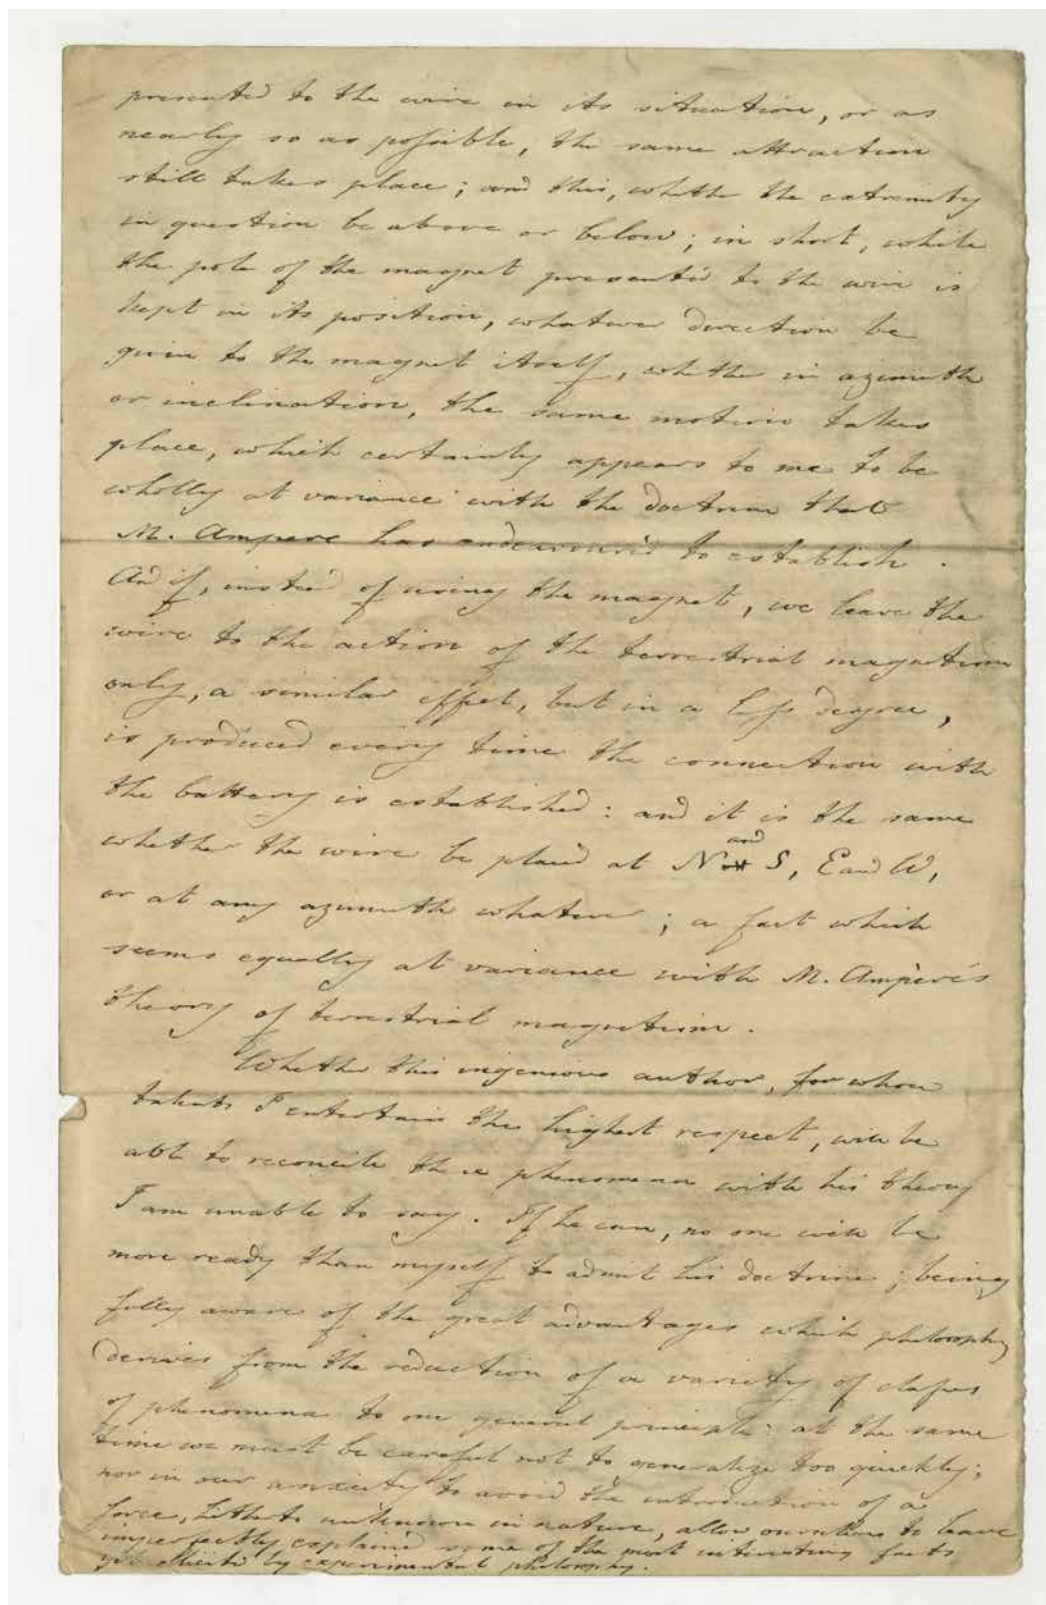 presented to the wire in its situation, or as
nearly so as possible, the same attraction
still takes place; and this, whether the extremity
in question be above or below; in short, while
the pole of the magnet presented to the wire is
kept in its position, whatever direction be
given to the magnet itself, whether in azimuth
or inclination, the same motion takes
place, which certainly appears to me to be
wholly at variance with the doctrine that
M. Ampere has endeavour'd to establish.
And if, instead of using the magnet, we leave the
wire to the action of the terrestrial magnetism
only, a similar effect, but in a less degree,
is produced every time the connection with
the battery is established: and it is the same
whether the wire be placed at N and S, E and W,
or at any azimuth whatever; a fact which
seems equally at variance with M. Ampère's
theory of terrestrial magnetism.
Whether this ingenious author, for whose
talents I entertain the highest respect, will be
able to reconcile these phenomena with his theory
I am unable to say. If he can, no one will be
more ready than myself to admit his doctrine; being
fully aware of the great advantages which philosophy
derives from the reduction of a variety of classes
of phenomena to one general principle: at the same
time we must be careful not to generalize too quickly;
nor in our anxiety to avoid the introduction of a
force, hitherto unknown in nature, allow ourselves to leave
imperfectly explained some of the most interesting facts
yet elicited by experimental philosophy.